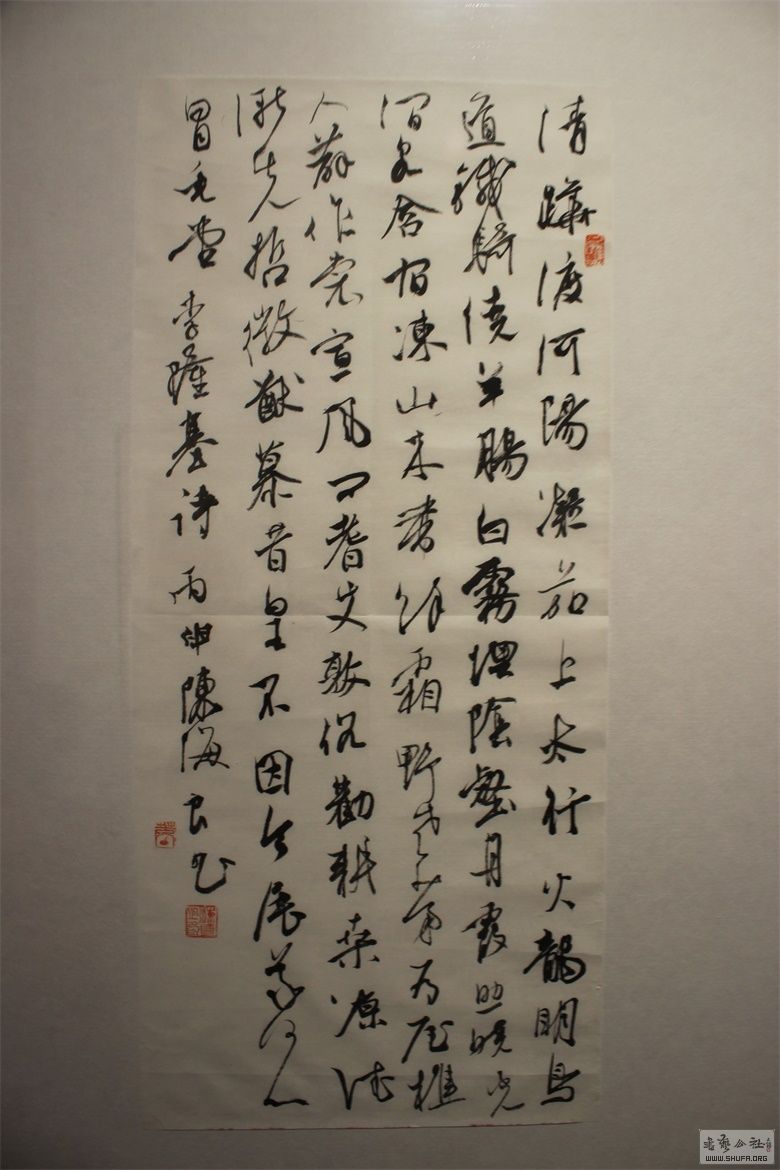 清蹕渡河陽凝笳上太行火龍明鳥
道鐵騎繞羊腸白霧埋陰壑丹霞照曉光
澗泉含宿凍山木帶餘霜野老茅為屋樵
人薜作裳宣風問耆艾敦俗勸耕桑涼德
慚先哲徽猷慕昔皇不因今展義何以
冒垂堂 李隆基詩 丙申陳海良書
書藝公社
WWW.SHUFA.ORG